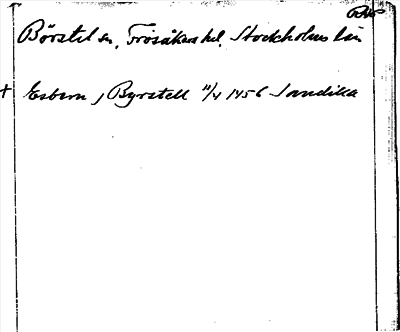 Börstel sn, Frösåkers hd, Stockholms län
+ Esbern j Byrstell 11/4 1456 Sandilla